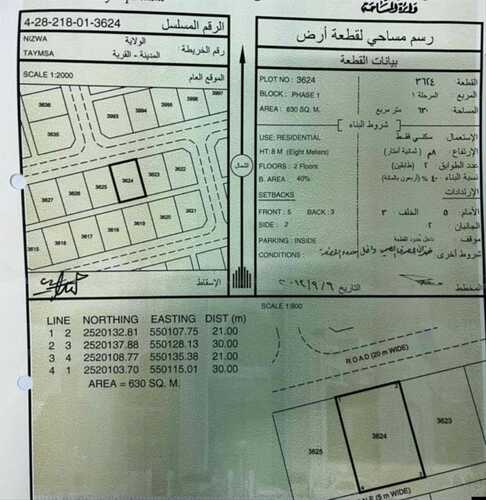 وزارة الإسكان
4-28-218-01-3624 الرقم المسلسل
NIZWA الولاية
TAYMSA المدينة - القرية
رقم الخريطة
SCALE 1:2000 الموقع العام
3636
3635
3993
3994
3995
3996
3997
3627
3626
3625
3624
3623
3622
3621
3615
3616
3617
3618
3619
3620
الشمال
الإسقاط
رسم مساحي لقطعة أرض
بيانات القطعة
PLOT NO : 3624 القطعة ٣٦٢٤
BLOCK : PHASE 1 المربع المرحلة ١
AREA : 630 SQ. M. المساحة ٦٣٠ متر مربع
شروط البناء
USE: RESIDENTIAL الاستعمال سكني فقط
HT: 8 M (Eight Meters) الإرتفاع ٨م (ثمانية أمتار)
FLOORS : 2 Floors عدد الطوابق ٢ (طابقين)
B. AREA 40% نسبة البناء ٤٠ % (أربعون بالمائة)
SETBACKS الإرتدادات
FRONT : 5 BACK : 3 الأمام ٥ الخلف ٣
SIDE : 2 الجانبان ٢
PARKING : INSIDE موقف داخل حدود القطعة
CONDITIONS : شروط أخرى
المخطط التاريخ ٢٠١٢/٩/٦
LINE NORTHING EASTING DIST (m)
1 2 2520132.81 550107.75 21.00
2 3 2520137.88 550128.13 30.00
3 4 2520108.77 550135.38 21.00
4 1 2520103.70 550115.01 30.00
AREA = 630 SQ. M.
SCALE 1:800
ROAD (20 m WIDE)
3625
3624
3623
(5 m WIDE)